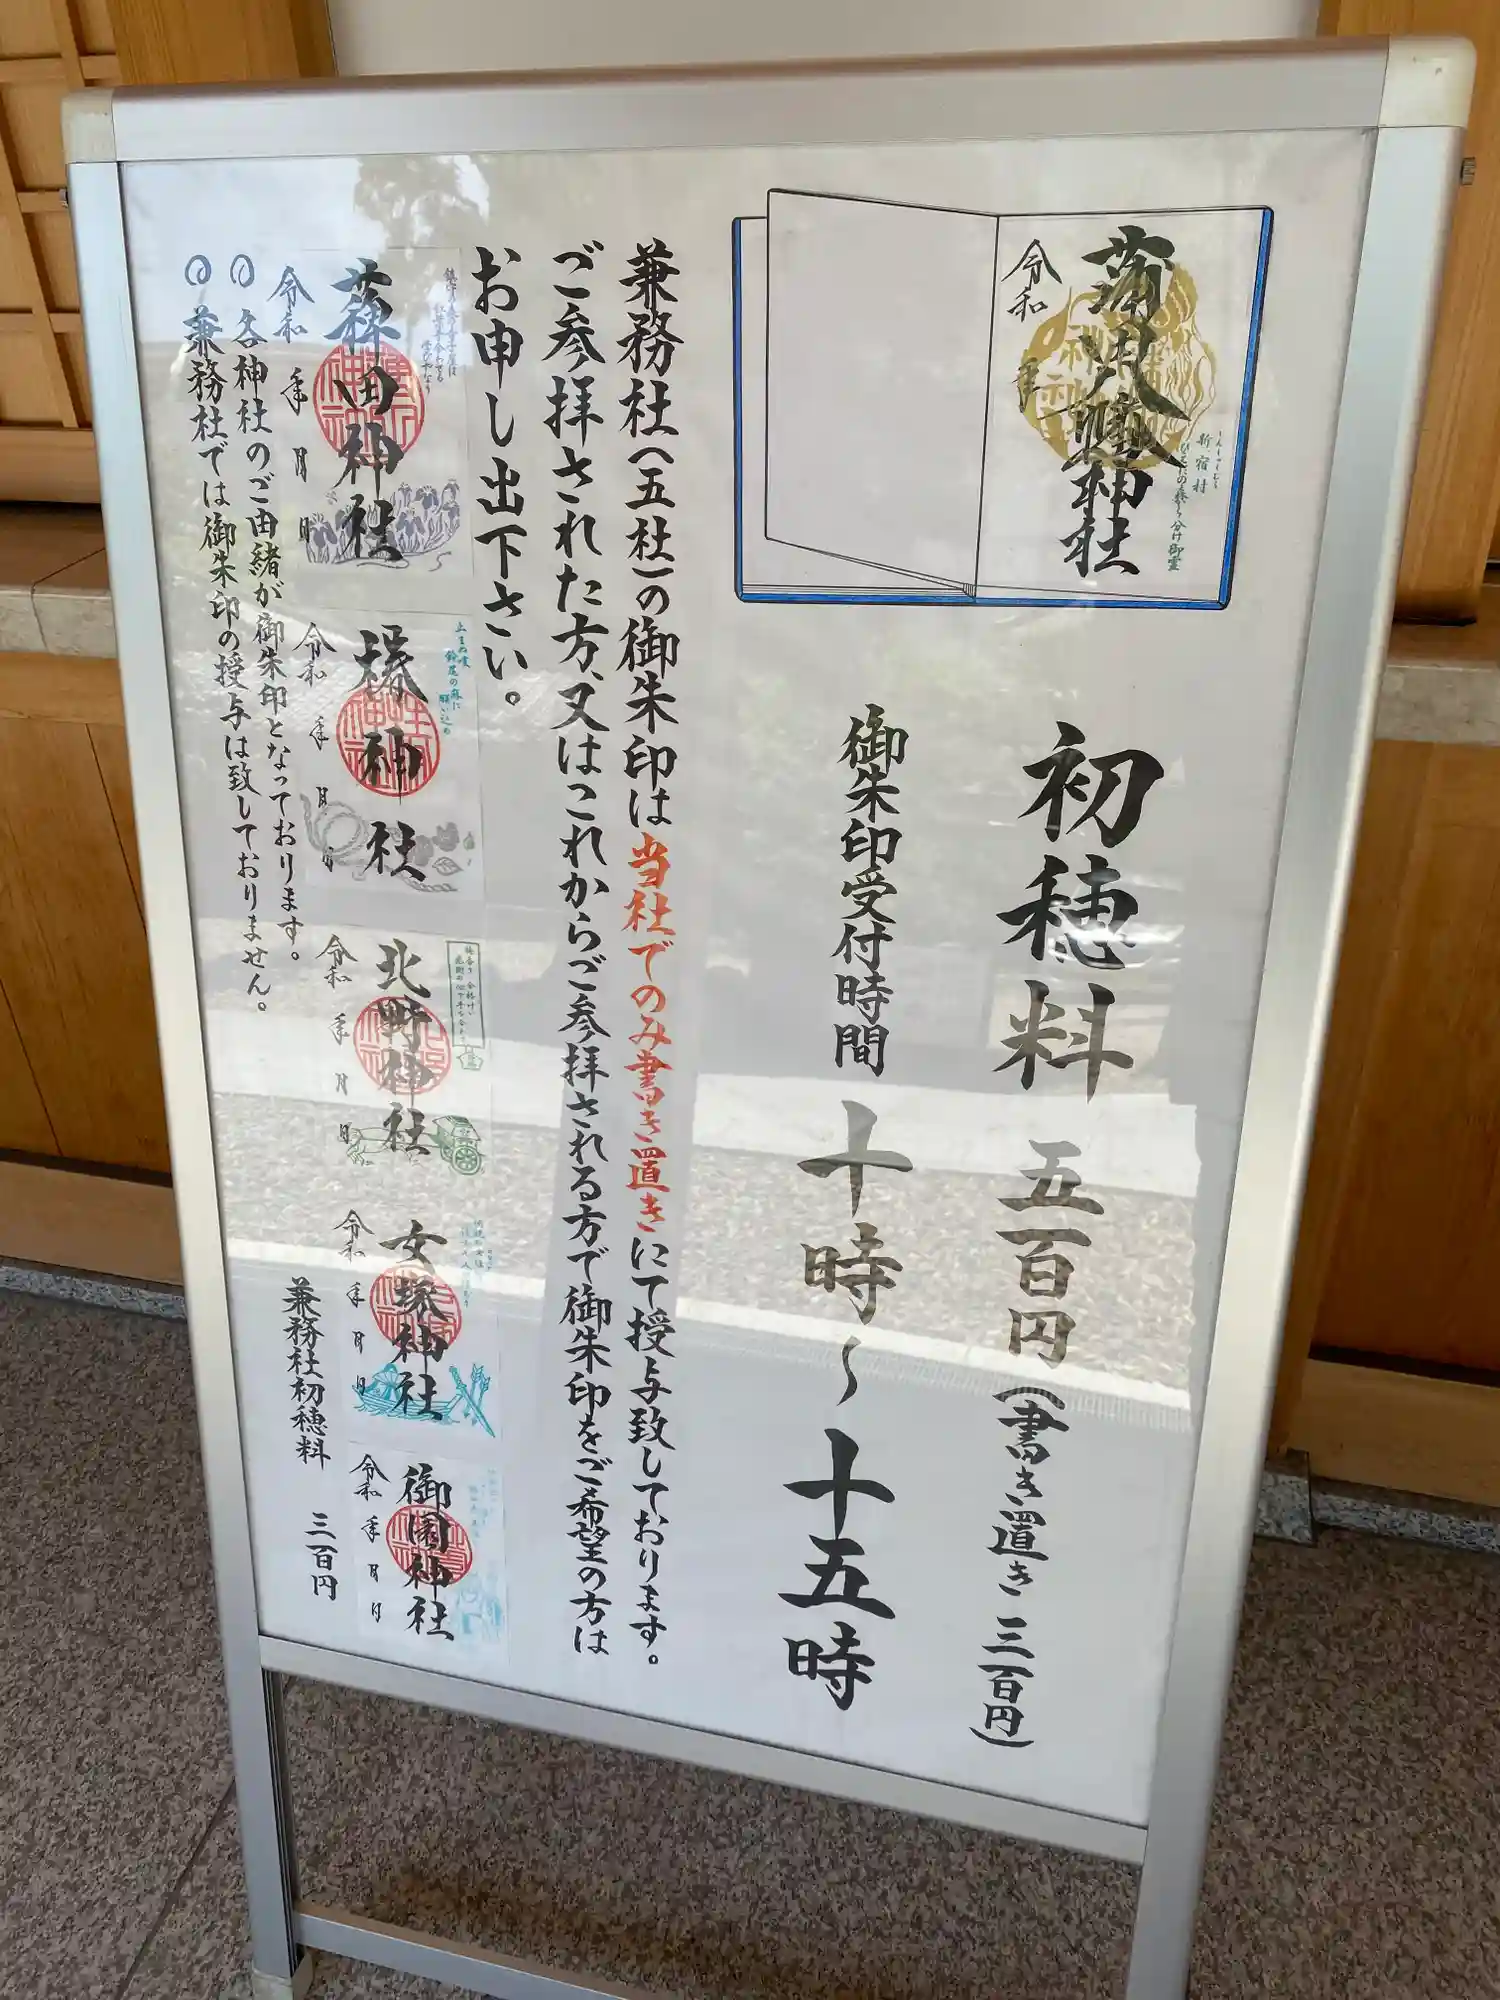 蒲田八幡神社
令和
年
新宿村
初穂料 五百円(書き置き 三百円)
御朱印受付時間 十時~十五時
兼務社(五社)の御朱印は当社でのみ書き置きにて授与致しております。
ご参拝された方、又はこれからご参拝される方で御朱印をご希望の方は
お申し出下さい。
令和 年 月 日
椿神社
止まぬ咳
鈴尾の麻に
願い込め
令和 年 月 日
北野神社
令和 年 月 日
女塚神社
令和 年 月 日
御園神社
令和 年 月 日
◎各神社のご由緒が御朱印となっております。
◎兼務社では御朱印の授与は致しておりません。
兼務社初穂料 三百円